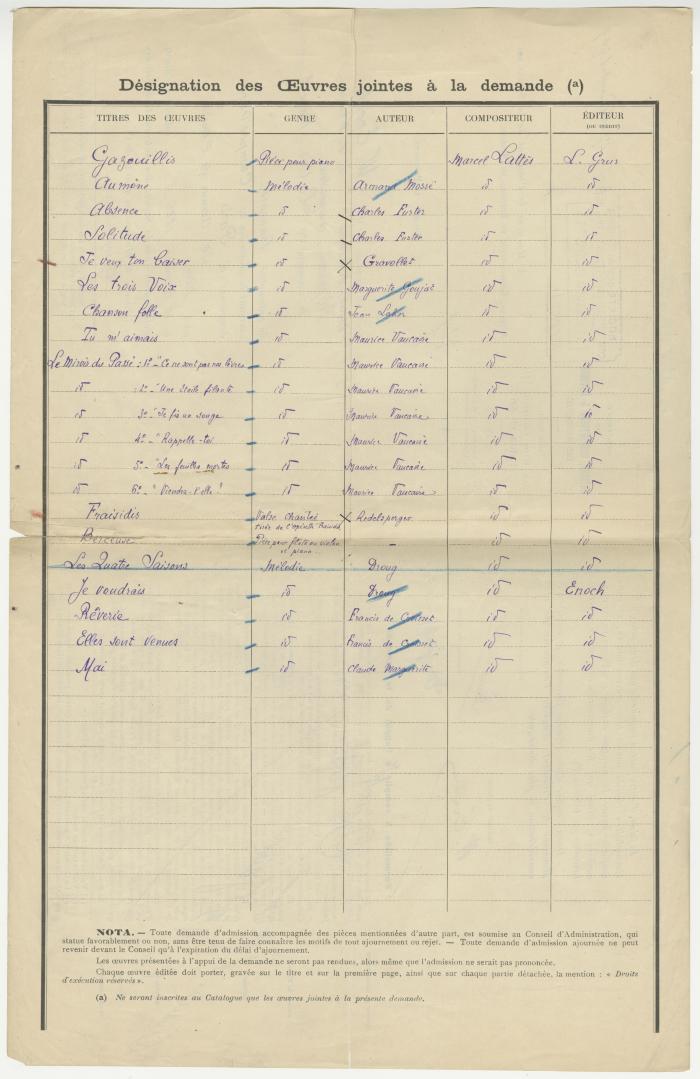 Désignation des Œuvres jointes à la demande (a)
TITRES DES ŒUVRES GENRE AUTEUR COMPOSITEUR ÉDITEUR
(OU GÉRANT)
Gazouillis Pièce pour piano Marcel Lattès L. Grus
Aumône Mélodie Armand Mossé id id
Absence id Charles Fuster id id
Solitude id Charles Fuster id id
Je veux ton baiser id Gravollet id id
Les trois Voix id Marguerite Goujat id id
Chanson folle id Jean id id
Tu m'aimais id Maurice Vaucaire id id
Le Miroir du Passé : 1º - "Ce ne sont pas nos lèvres id Maurice Vaucaire id id
id : 2º - "Une étoile filante id Maurice Vaucaire id id
id 3º - "Je fis un songe id Maurice Vaucaire id id
id 4º - "Rappelle-toi id Maurice Vaucaire id id
id 5º - "Les feuilles mortes id Maurice Vaucaire id id
id 6º - "Viendra-t-elle ! id Maurice Vaucaire id id
Fraisidis Valse chantée Redelsperger id id
tirée de l'opérette Fraisidis
Berceuse Pièce pour flûte ou violon – id id
et piano
Les Quatre Saisons Mélodie Droug id id
Je voudrais id Droug id Enoch
Rêverie id Francis de Croisset id id
Elles sont venues id Francis de Croisset id id
Mai id Claude Marguerite id id
NOTA. — Toute demande d'admission accompagnée des pièces mentionnées d'autre part, est soumise au Conseil d'Administration, qui
statue favorablement ou non, sans être tenu de faire connaître les motifs de tout ajournement ou rejet. — Toute demande d'admission ajournée ne peut
revenir devant le Conseil qu'à l'expiration du délai d'ajournement.
Les œuvres présentées à l'appui de la demande ne seront pas rendues, alors même que l'admission ne serait pas prononcée.
Chaque œuvre éditée doit porter, gravée sur le titre et sur la première page, ainsi que sur chaque partie détachée, la mention : « Droits
d'exécution réservés ».
(a) Ne seront inscrites au Catalogue que les œuvres jointes à la présente demande.